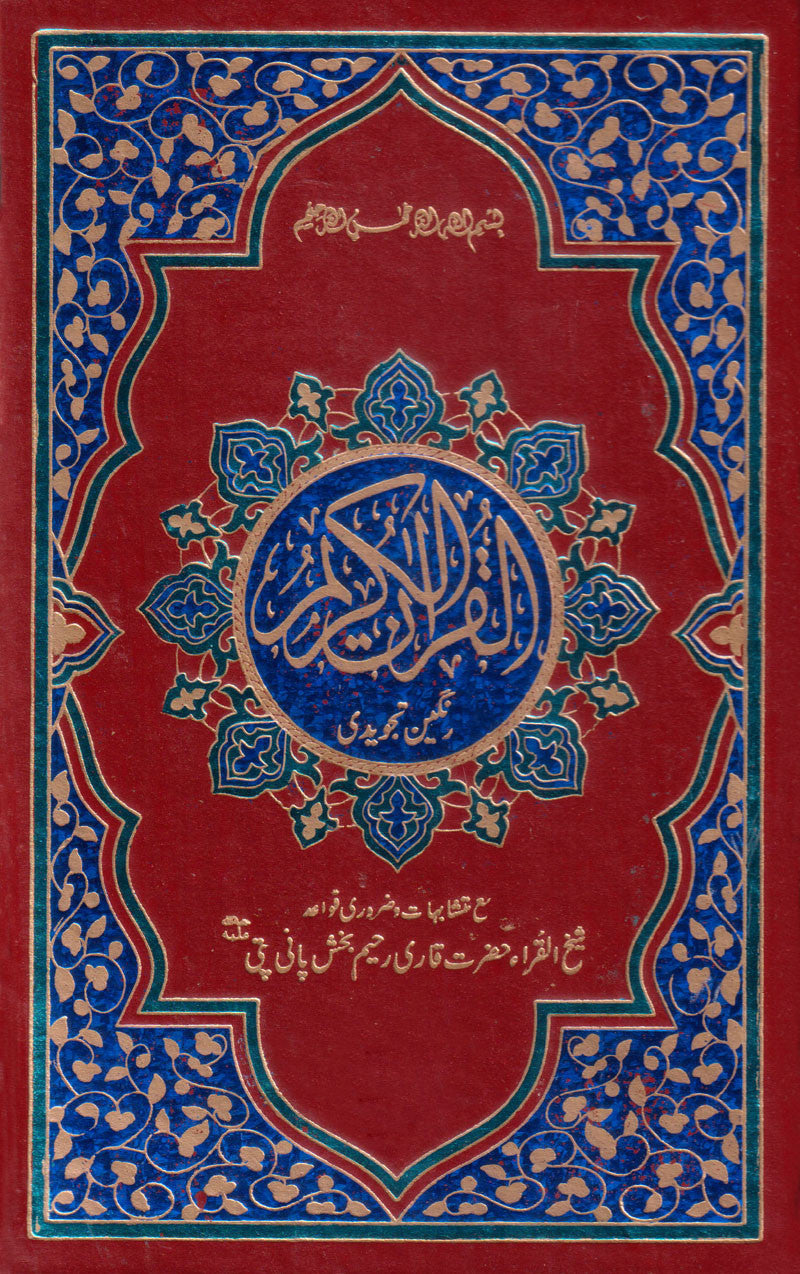 بسم الله الرحمن الرحیم
القرآن الکریم
رنگین تجویدی
مع متشابہات و ضروری قواعد
شیخ القراء حضرت قاری رحیم بخش پانی پتی رحمۃ اللہ علیہ